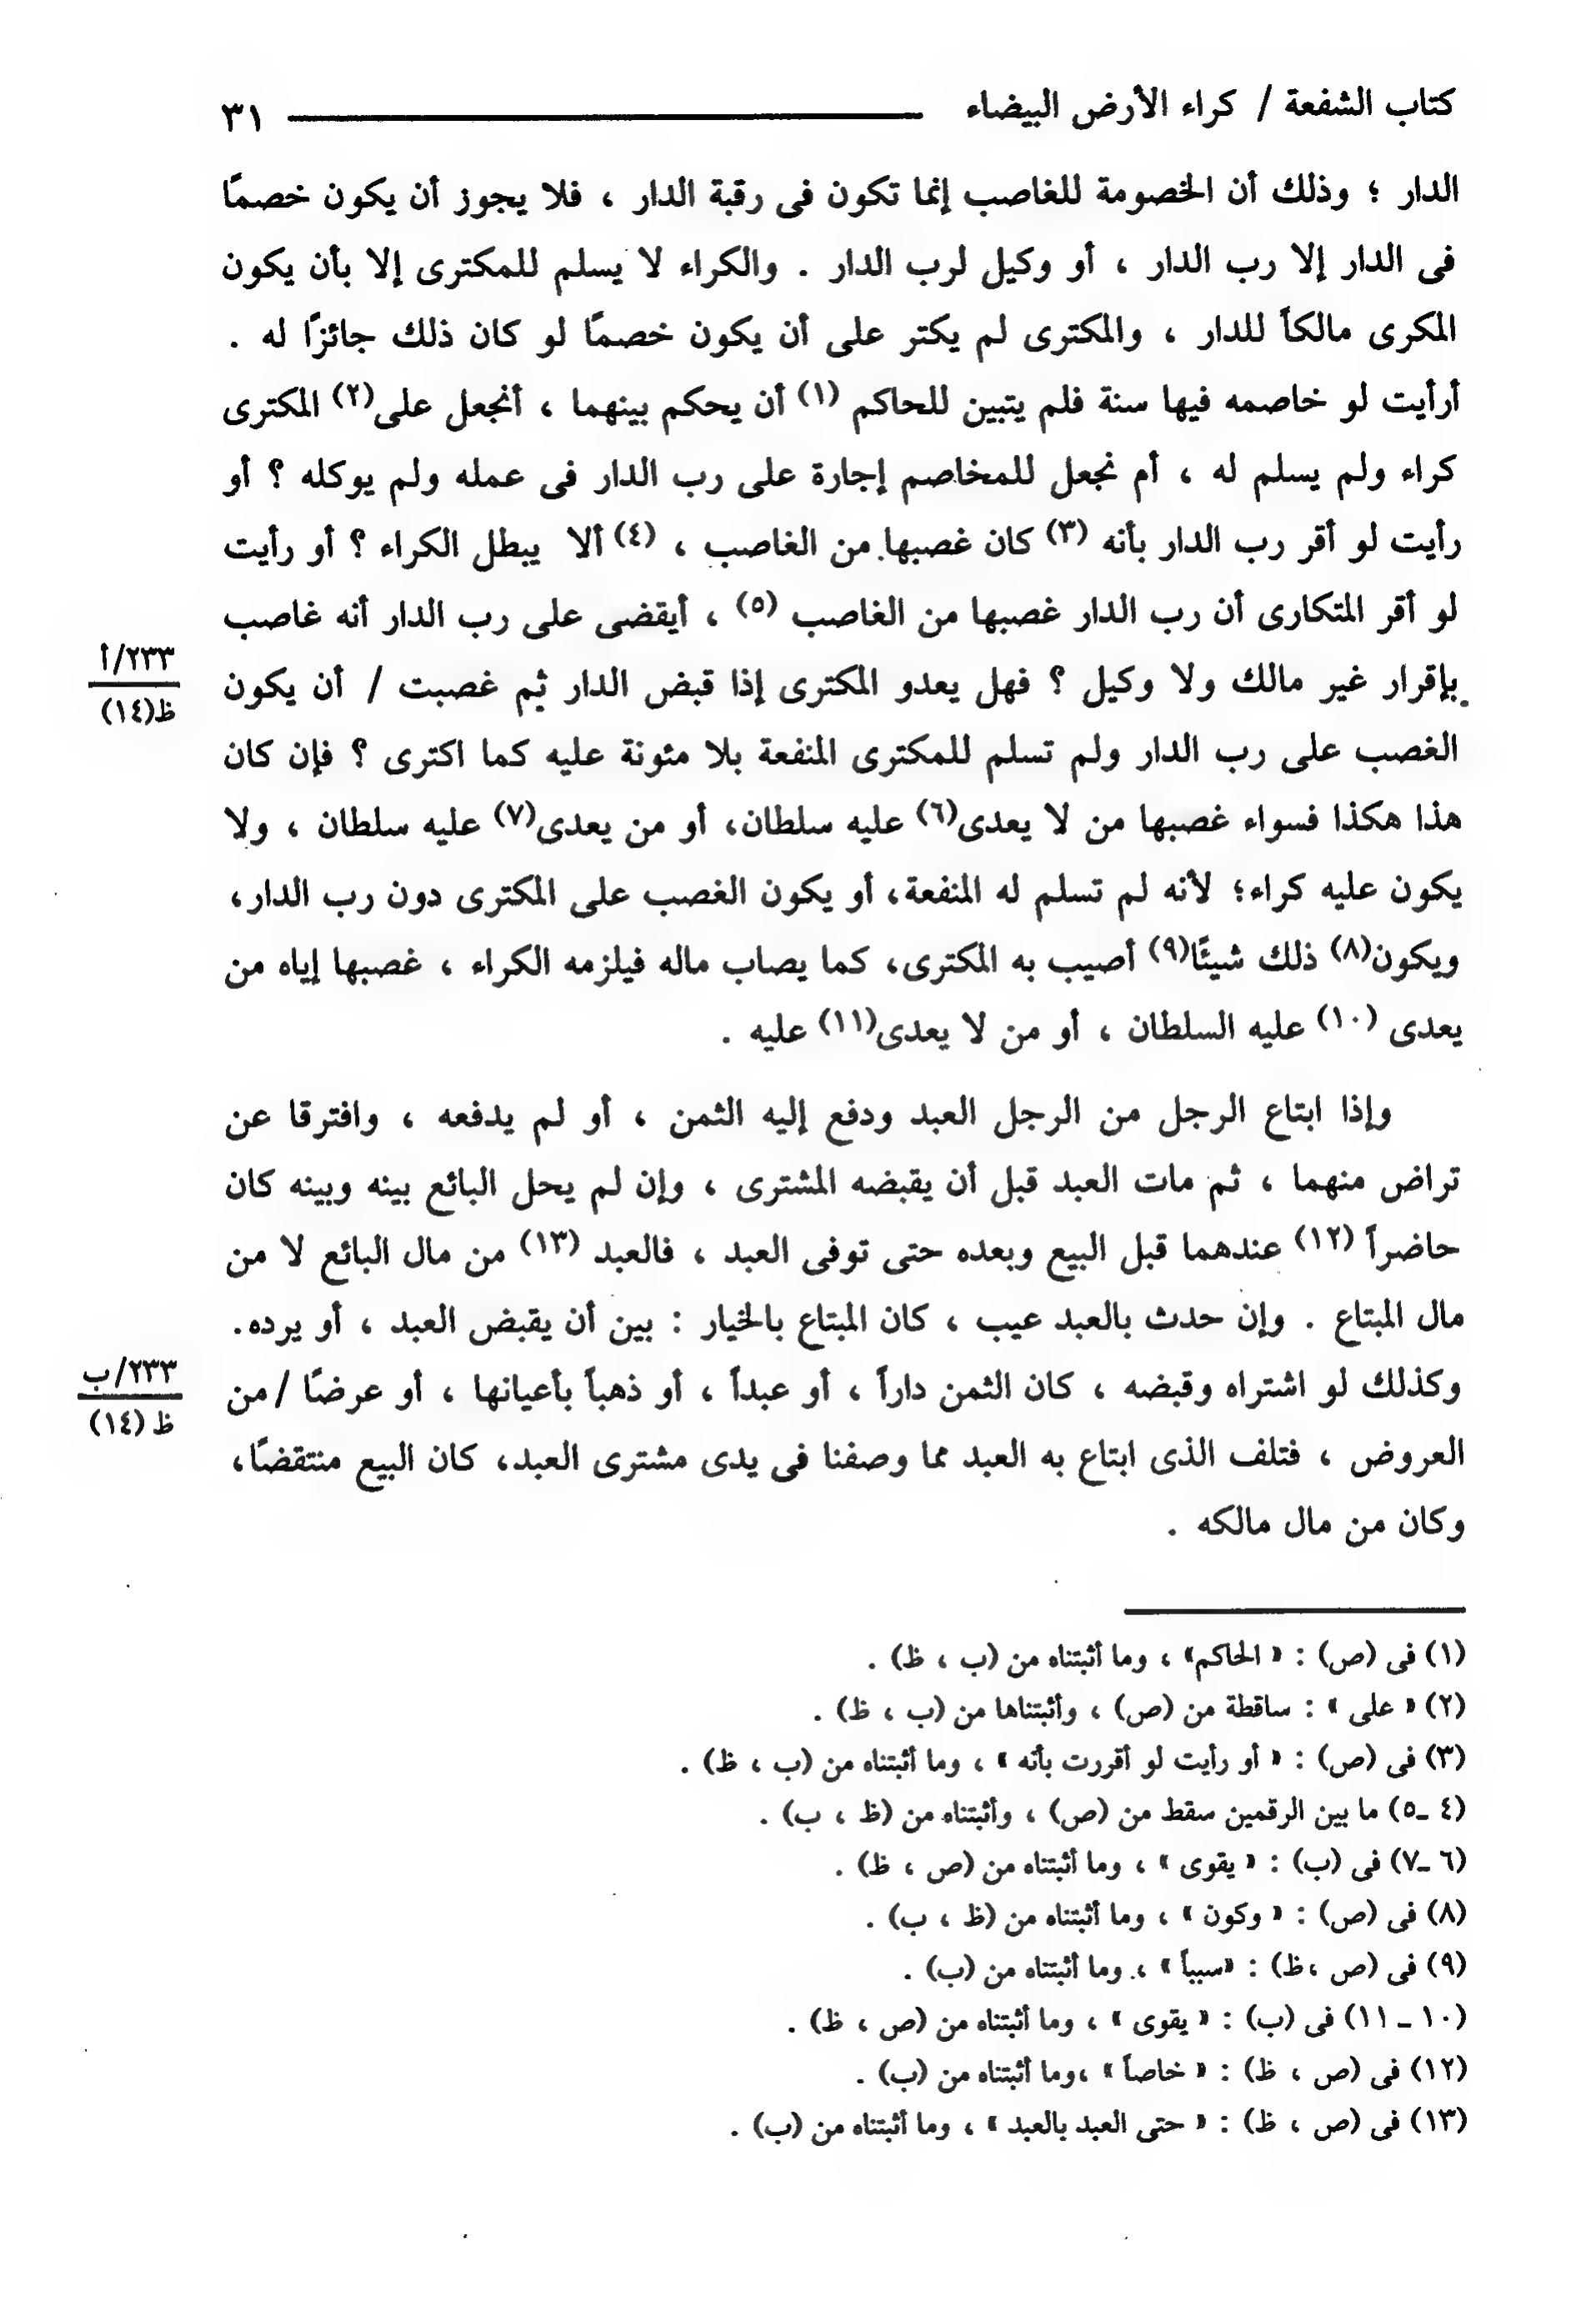 كتاب الشفعة / كراء الأرض البيضاء ٣١
الدار ؛ وذلك أن الخصومة للغاصب إنما تكون فى رقبة الدار ، فلا يجوز أن يكون خصمًا
فى الدار إلا رب الدار ، أو وكيل لرب الدار . والكراء لا يسلم للمكترى إلا بأن يكون
المكرى مالكاً للدار ، والمكترى لم يكتر على أن يكون خصمًا لو كان ذلك جائزًا له .
أرأيت لو خاصمه فيها سنة فلم يتبين للحاكم (١) أن يحكم بينهما ، أنجعل على(٢) المكترى
كراء ولم يسلم له ، أم نجعل للمخاصم إجارة على رب الدار فى عمله ولم يوكله ؟ أو
رأيت لو أقر رب الدار بأنه (٣) كان غصبها من الغاصب ، (٤) ألا يبطل الكراء ؟ أو رأيت
لو أقر المتكارى أن رب الدار غصبها من الغاصب (٥) ، أيقضى على رب الدار أنه غاصب
بإقرار غير مالك ولا وكيل ؟ فهل يعدو المكترى إذا قبض الدار ثم غصبت / أن يكون
٢٣٣/أ
ظ(١٤)
الغصب على رب الدار ولم تسلم للمكترى المنفعة بلا مئونة عليه كما اكترى ؟ فإن كان
هذا هكذا فسواء غصبها من لا يعدى(٦) عليه سلطان، أو من يعدى(٧) عليه سلطان ، ولا
يكون عليه كراء؛ لأنه لم تسلم له المنفعة، أو يكون الغصب على المكترى دون رب الدار،
ويكون(٨) ذلك شيئًا(٩) أصيب به المكترى، كما يصاب ماله فيلزمه الكراء ، غصبها إياه من
يعدى (١٠) عليه السلطان ، أو من لا يعدى(١١) عليه .
وإذا ابتاع الرجل من الرجل العبد ودفع إليه الثمن ، أو لم يدفعه ، وافترقا عن
تراض منهما ، ثم مات العبد قبل أن يقبضه المشترى ، وإن لم يحل البائع بينه وبينه كان
حاضراً (١٢) عندهما قبل البيع وبعده حتى توفى العبد ، فالعبد (١٣) من مال البائع لا من
مال المبتاع . وإن حدث بالعبد عيب ، كان المبتاع بالخيار : بين أن يقبض العبد ، أو يرده.
وكذلك لو اشتراه وقبضه ، كان الثمن داراً ، أو عبداً ، أو ذهباً بأعيانها ، أو عرضًا /من
٢٣٣/ب
ظ (١٤)
العروض ، فتلف الذى ابتاع به العبد مما وصفنا فى يدى مشترى العبد، كان البيع منتقضًا،
وكان من مال مالكه .
(١) فى (ص) : « الحاكم» ، وما أثبتناه من (ب ، ظ) .
(٢) « على » : ساقطة من (ص) ، وأثبتناها من (ب ، ظ) .
(٣) فى (ص) : « أو رأيت لو أقررت بأنه » ، وما أثبتناه من (ب ، ظ) .
(٤ _٥) ما بين الرقمين سقط من (ص) ، وأثبتناه من (ظ ، ب) .
(٦ _٧) فى (ب) : « يقوى » ، وما أثبتناه من (ص ، ظ) .
(٨) فى (ص) : « وكون » ، وما أثبتناه من (ظ ، ب) .
(٩) فى (ص ،ظ) : «سبباً » ، وما أثبتناه من (ب) .
(١٠ _ ١١) فى (ب) : « يقوى » ، وما أثبتناه من (ص ، ظ) .
(١٢) فى (ص ، ظ) : « خاصاً » ،وما أثبتناه من (ب) .
(١٣) فى (ص ، ظ) : « حتى العبد بالعبد » ، وما أثبتناه من (ب) .